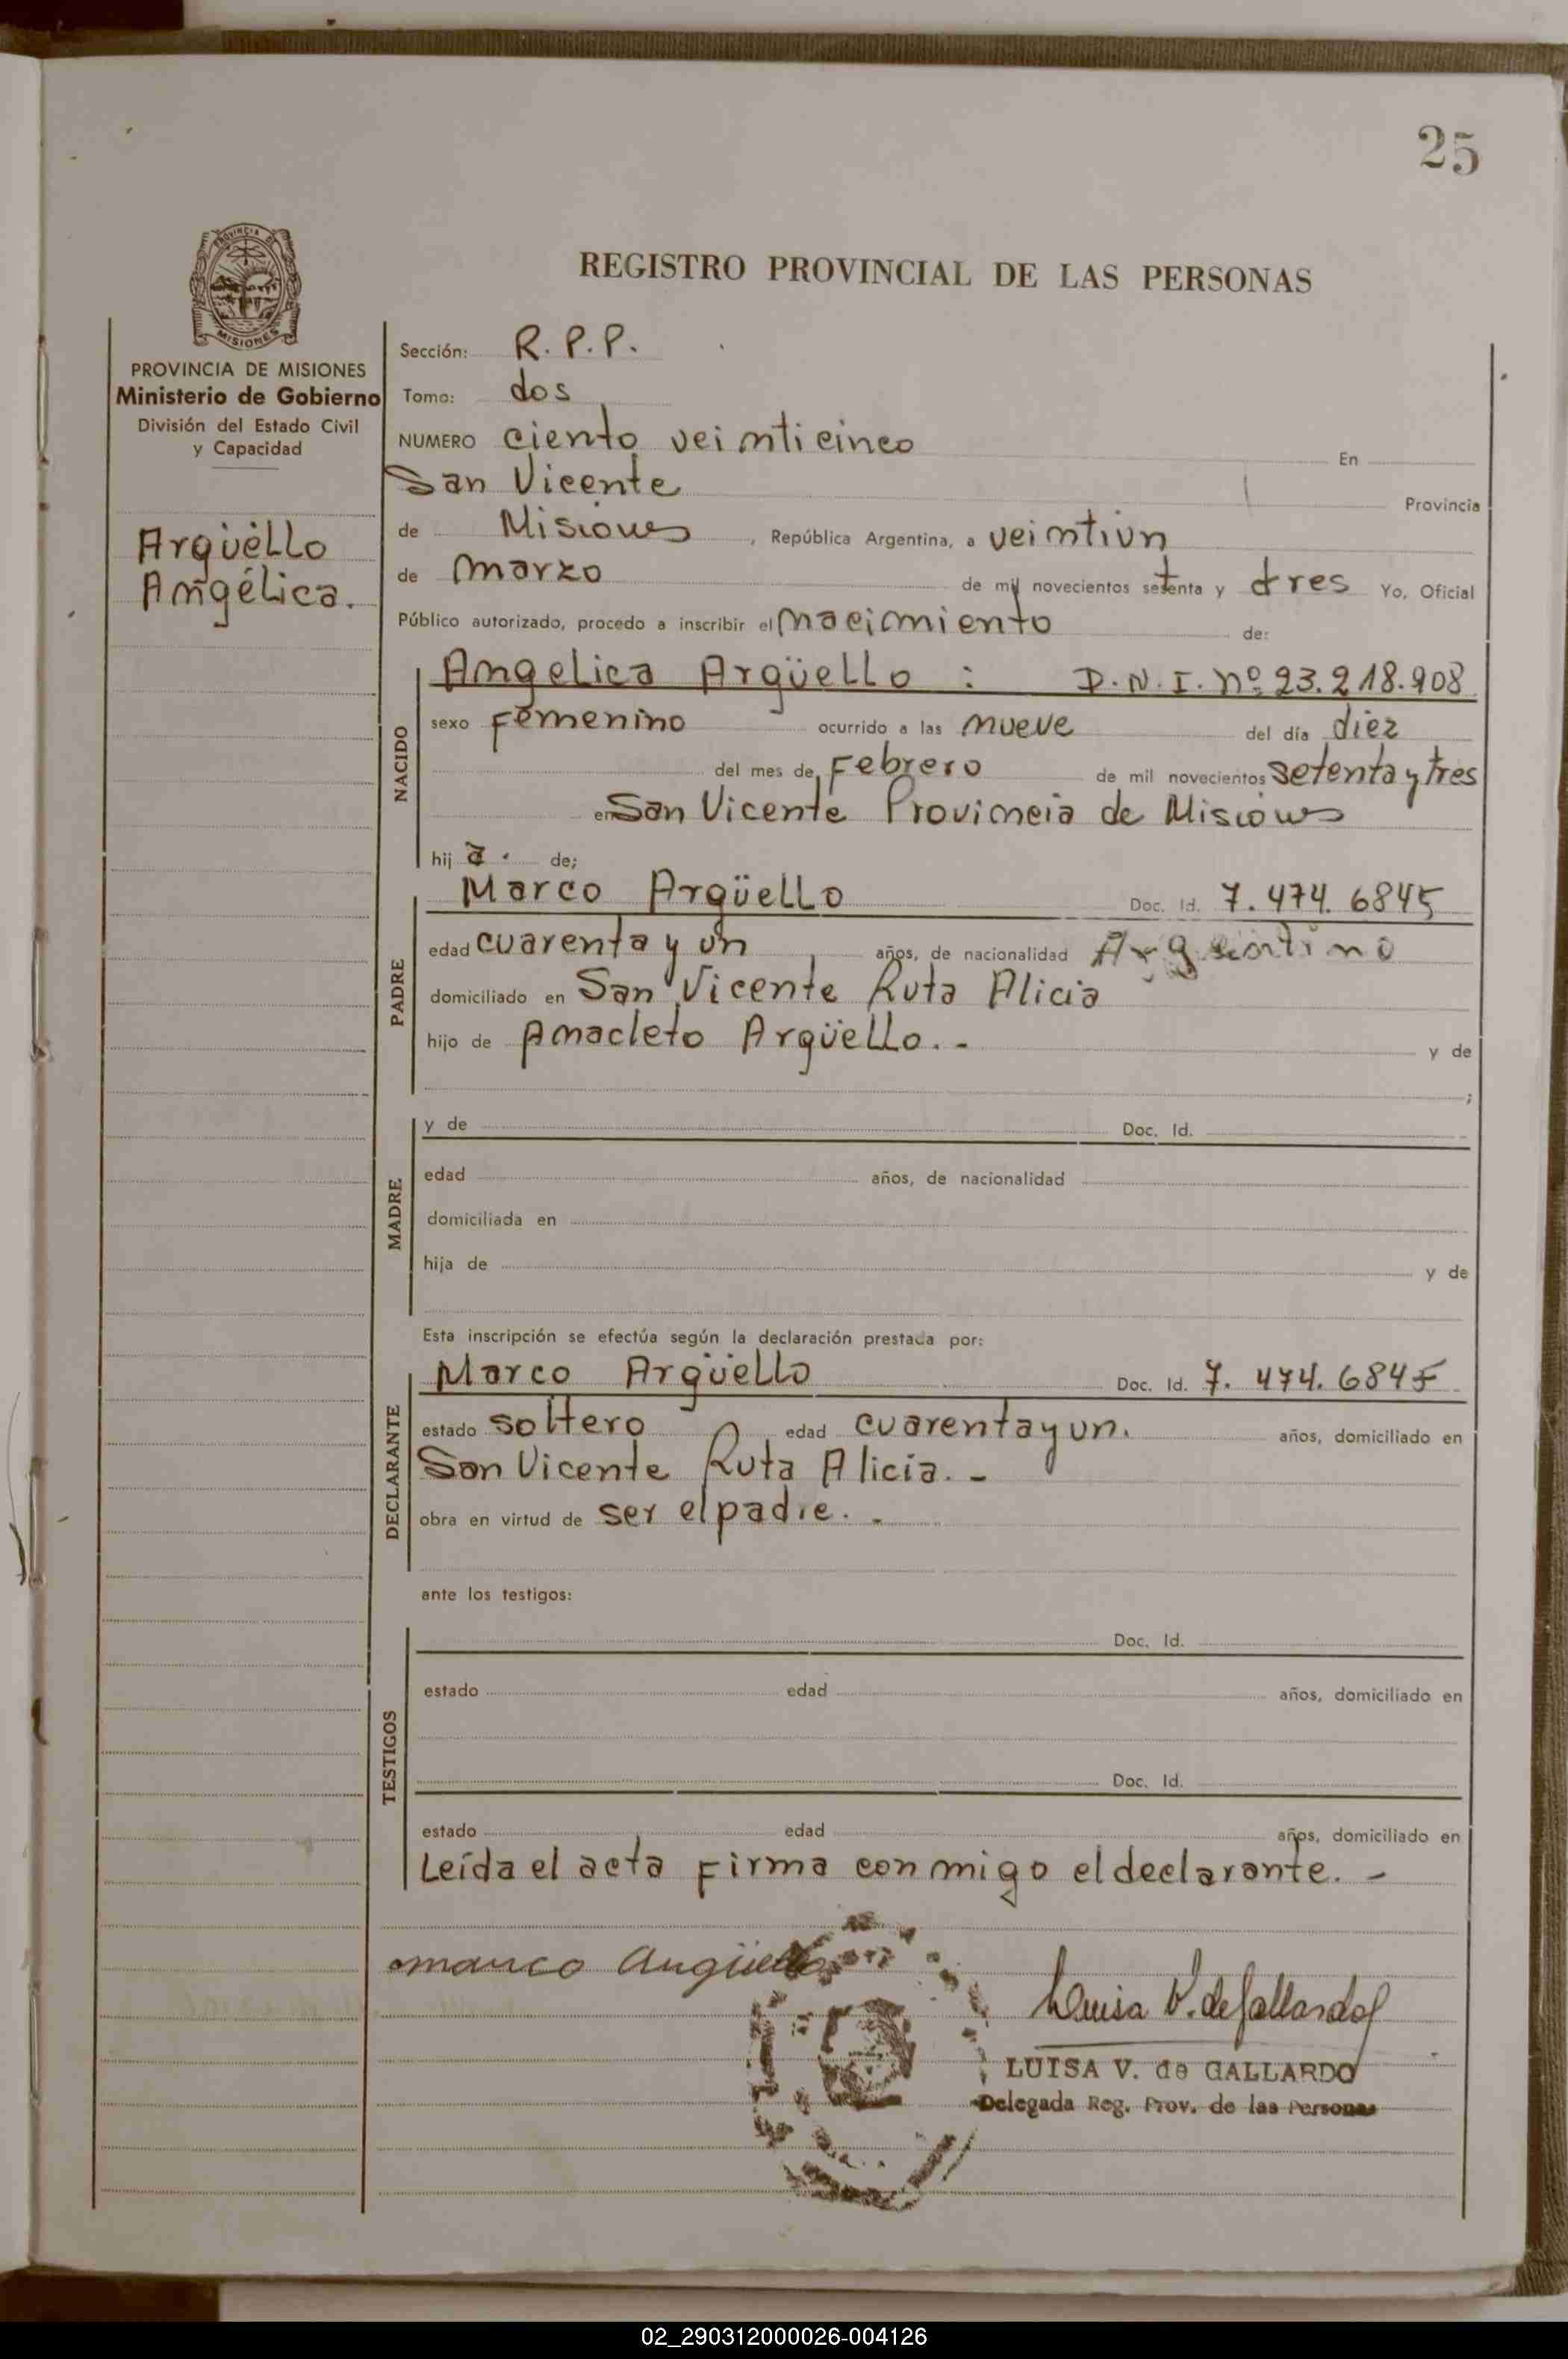 25
REGISTRO PROVINCIAL DE LAS PERSONAS
PROVINCIA DE
MISIONES
PROVINCIA DE MISIONES
Ministerio de Gobierno
División del Estado Civil
y Capacidad
Argüello
Angélica.
Sección: R. P. P.
Tomo: dos
NUMERO ciento veinticinco En
San Vicente Provincia
de Misiones, República Argentina, a veintiun
de marzo de mil novecientos setenta y tres Yo, Oficial
Público autorizado, procedo a inscribir el nacimiento de:
NACIDO
Angelica Argüello : D.N.I. nº 23.218.908
sexo Femenino ocurrido a las nueve del día diez
del mes de Febrero de mil novecientos setenta y tres
en San Vicente Provincia de Misiones
hij a. de;
PADRE
Marco Argüello Doc. Id. 7.474.6845
edad cuarenta y un años, de nacionalidad Argentino
domiciliado en San Vicente Ruta Alicia
hijo de Anacleto Argüello. - y de
;
MADRE
y de Doc. Id.
edad años, de nacionalidad
domiciliada en
hija de y de
Esta inscripción se efectúa según la declaración prestada por:
DECLARANTE
Marco Argüello Doc. Id. 7. 474. 6845
estado soltero edad cuarenta y un. años, domiciliado en
San Vicente Ruta Alicia. -
obra en virtud de ser el padre. -
ante los testigos:
TESTIGOS
Doc. Id.
estado edad años, domiciliado en
Doc. Id.
estado edad años, domiciliado en
Leída el acta firma con migo el declarante. -
marco Argüello
Luisa V. de Gallardo
LUISA V. de GALLARDO
Delegada Reg. Prov. de las Personas
02_290312000026-004126